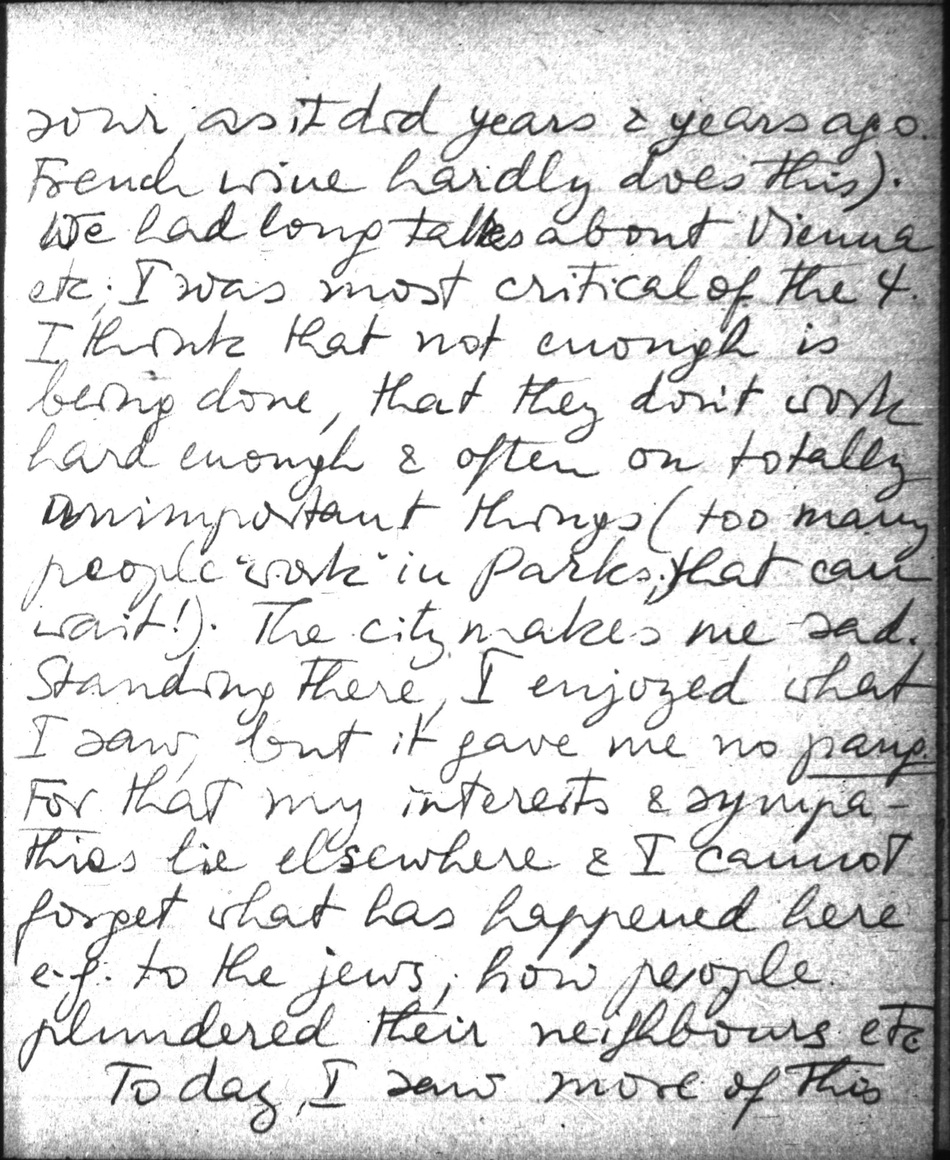 sour, as it did years & years ago.
French wine hardly does this).
We had long talks about Vienna
etc; I was most critical of the 4.
I think that not enough is
being done, that they don't work
hard enough & often on totally
unimportant things (too many
people "work" in Parks; that can
wait!). The city makes me sad.
Standing there, I enjoyed what
I saw, but it gave me no pang.
For that my interests & sympa-
thies lie elsewhere & I cannot
forget what has happened here
e.g. to the jews, how people
plundered their neighbours etc
Today, I saw more of this